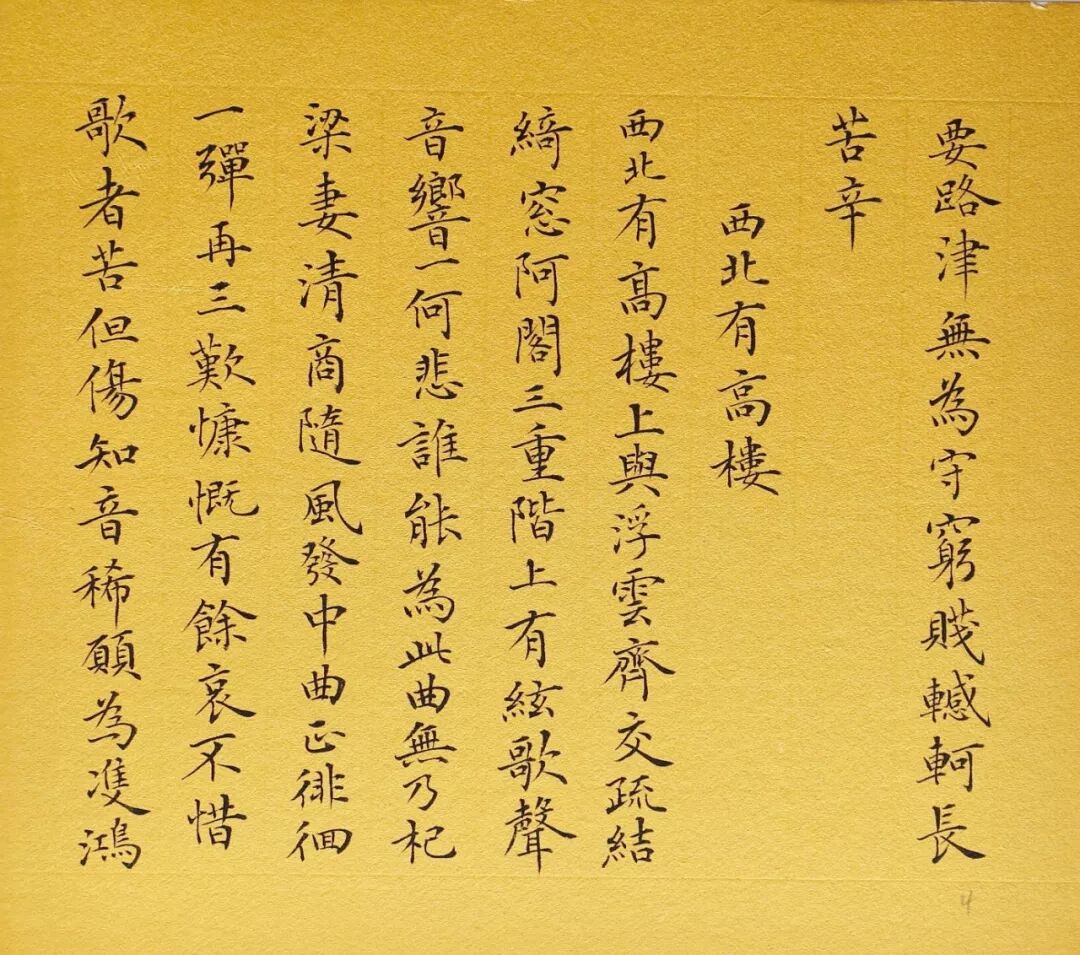 要路津無為守窮賤轗軻長
苦辛
西北有高樓
西北有高樓上與浮雲齊交疏結
綺窓阿閣三重階上有絃歌聲
音響一何悲誰能為此曲無乃杞
梁妻清商隨風發中曲正徘徊
一彈再三歎慷慨有餘哀不惜
歌者苦但傷知音稀願為雙鴻
4